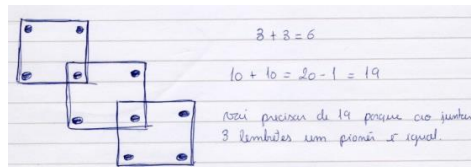 3 + 3 = 6
10 + 10 = 20 - 1 = 19
vai precisar de 19 porque ao juntar
3 lembretes um pionés é igual.